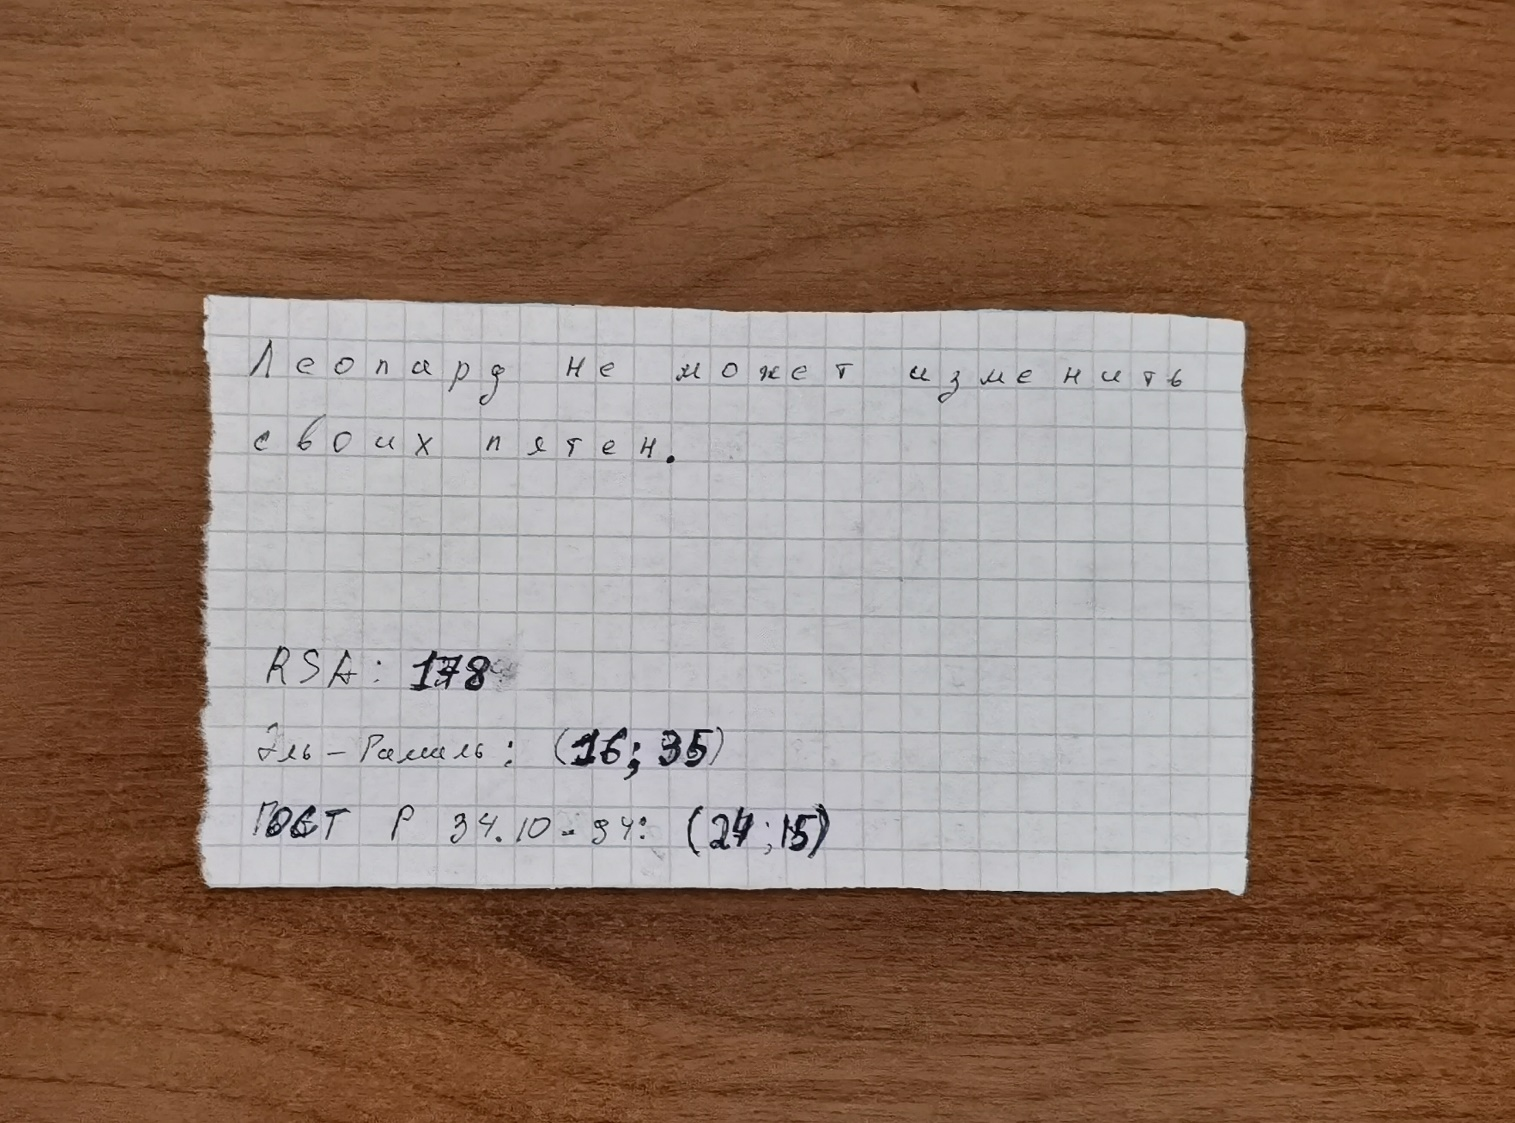 Леопард не может изменить
своих пятен.
RSA: 178
Эль-Гамаль: (16; 35)
ГОСТ Р 34.10-94: (24;15)